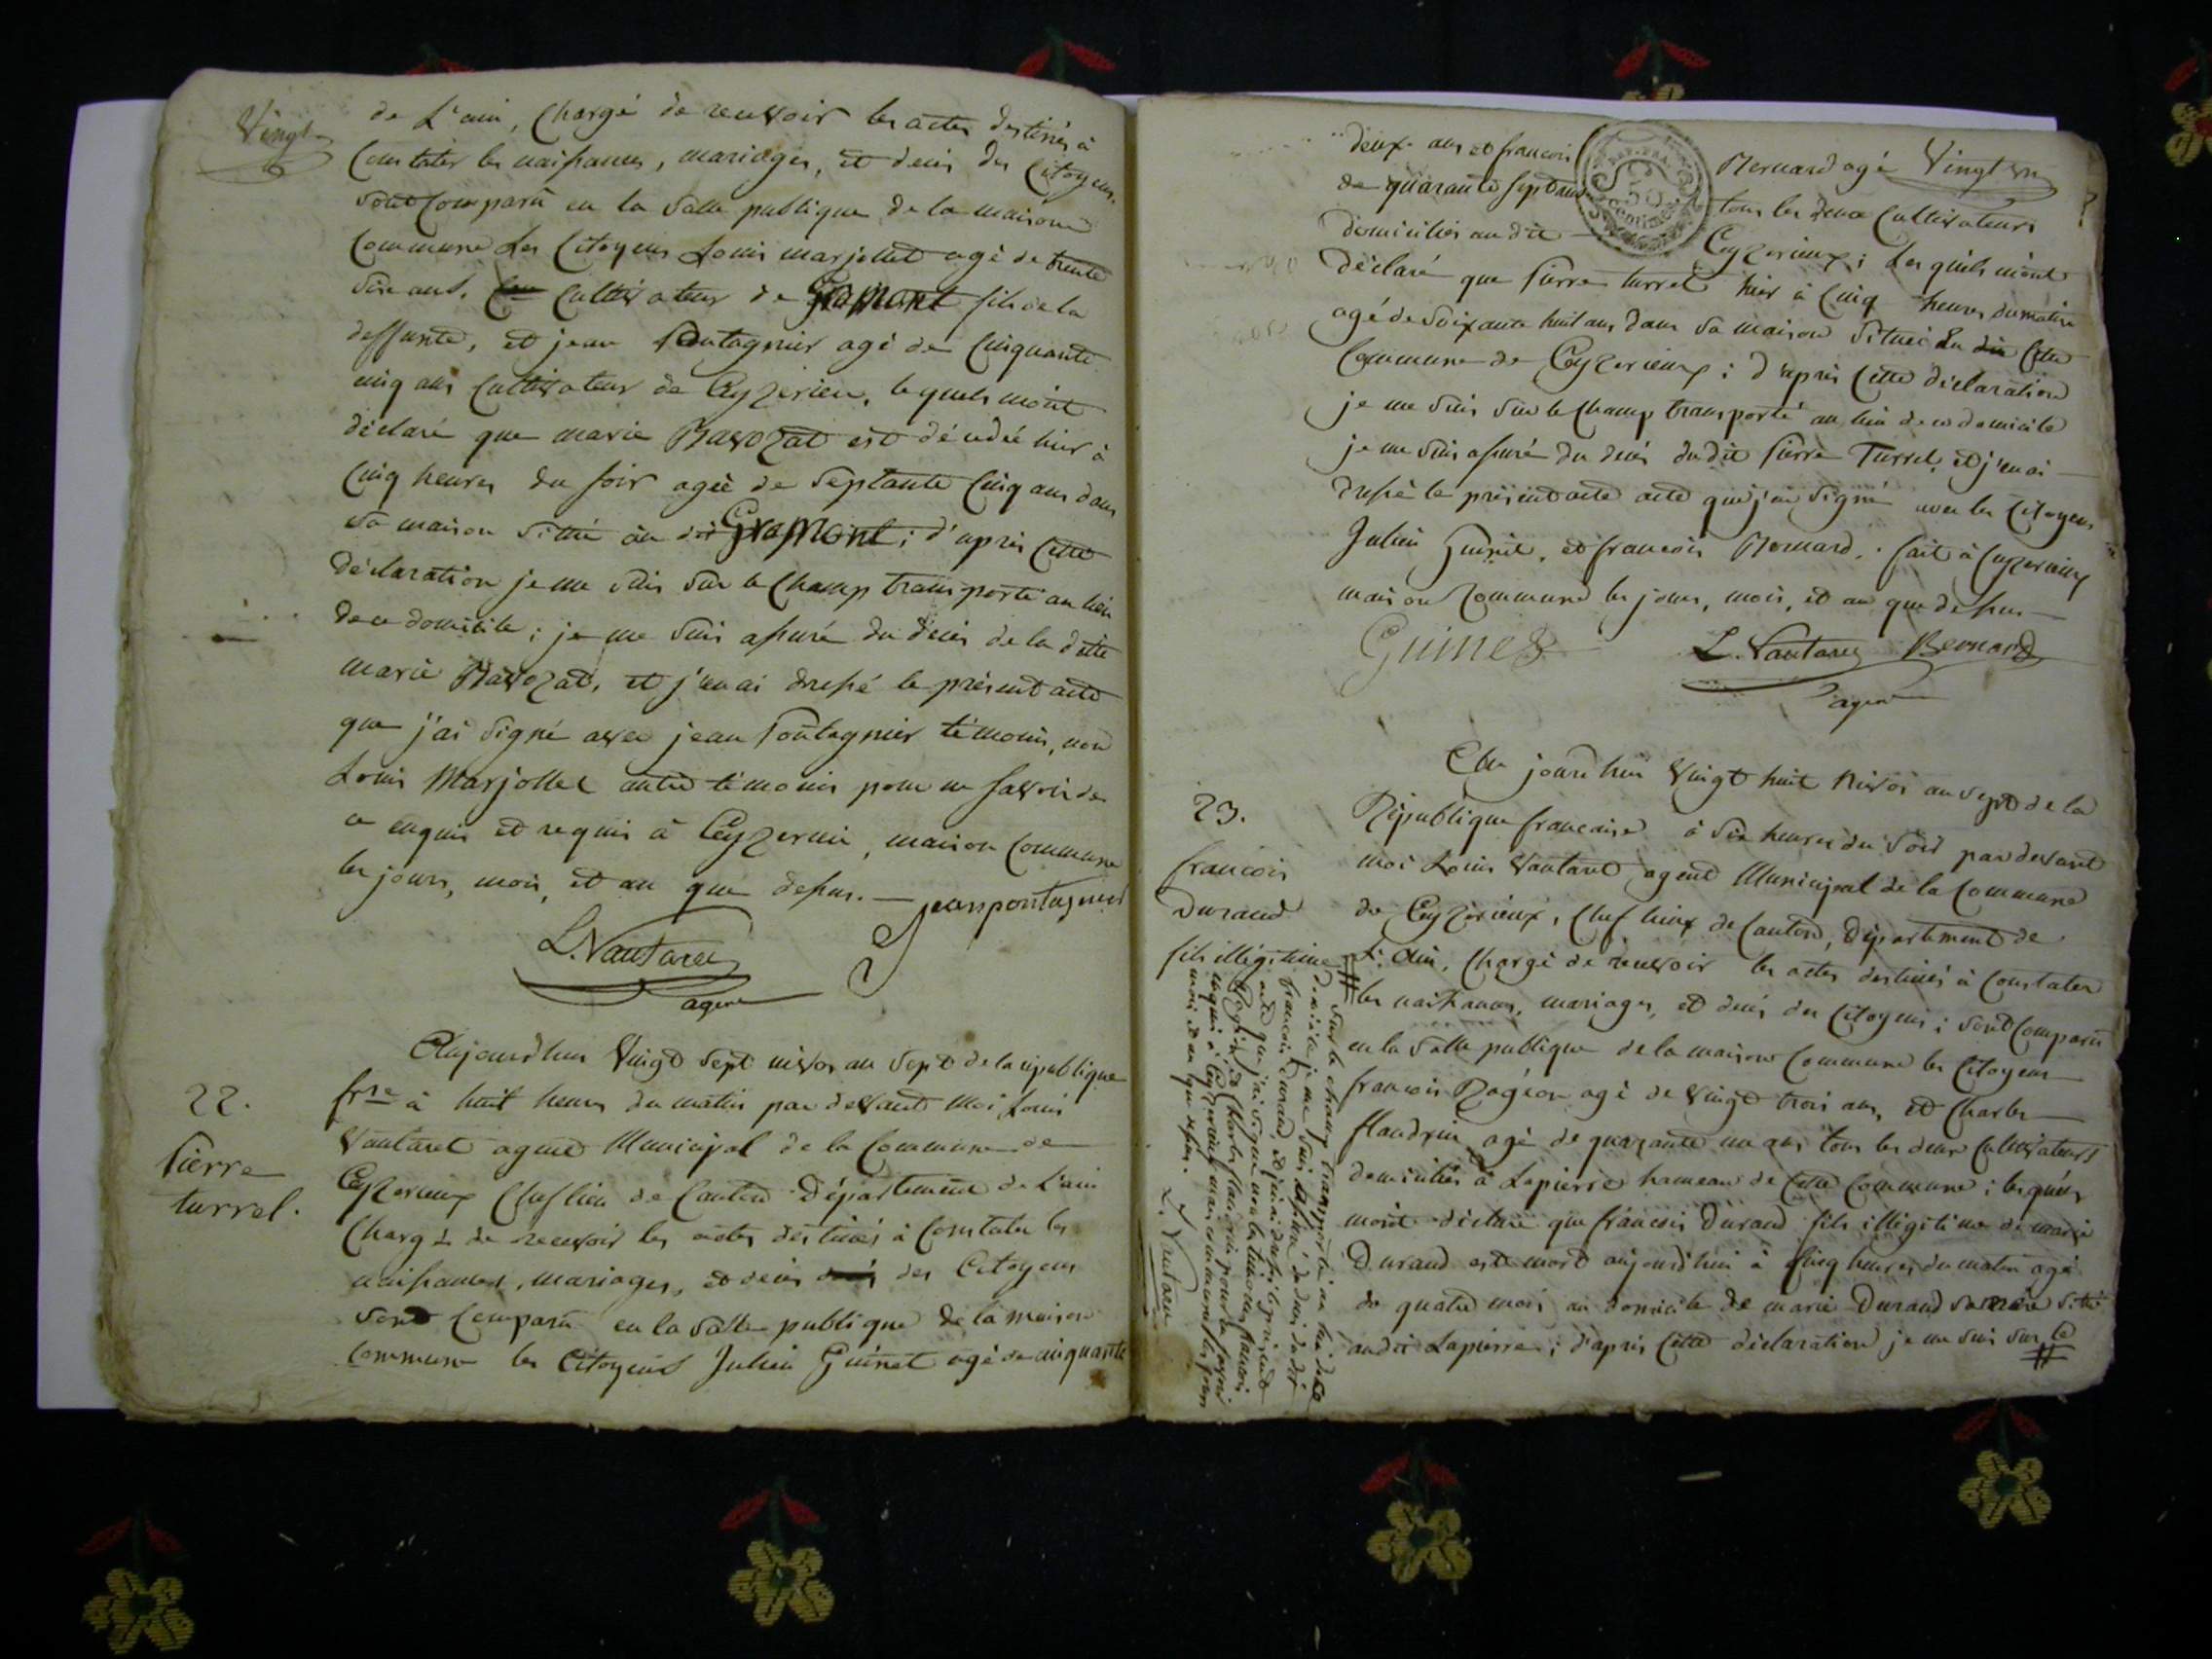 Vingt
de L'ain, Chargé de recevoir les actes destinés à
Constater les naissances, mariages, et decés des Citoyens.
sont Comparû en la Salle publique de la maison
Commune Les Citoyens Louis marjollet agé de trente
Six ans, Cultivateur de Gramont fils de la
deffunte, et jean Pontagnier agé de Cinquante
cinq ans Cultivateur de Ceyzerieu, lequels m'ont
déclaré que marie Bavozat est décédée hier à
Cinq heures du soir agée de Septante Cinq ans dans
sa maison Située au dit Gramont; d'après Cette
déclaration je me suis sur le Champ transporté au lieu
de ce domicile; je me suis assuré du decés de la ditte
marie Bavozat, et j'en ai dressé le présent acte
que j'ai Signé avec jean Pontagnier témoin, non
Louis Marjollet autre témoin pour ne savoir de
ce enquis et requis à Ceyzerieu, maison Commune
les jours, mois, et an que dessus. — jean pontagnier
L. Vautaret
agent
22.
Pierre
turrel.
Aujourdhui Vingt Sept nivos an Sept de la republique
frse à huit heures du matin par devant Moi Louis
Vautaret agent Municipal de la Commune de
Ceyzerieux Chef lieu de Canton Département de L'ain
Chargé de recevoir les actes destinés à Constater les
naissances, mariages, et decés des Citoyens
Sont Comparû en la Salle publique de la maison
Commune les Citoyens Julien Guinet agé de cinquante
Vingt un
deux ans et francois Bernard agé
de quarante sept ans tous les deux Cultivateurs
domiciliés au dit Ceyzerieux; Les quels m'ont
déclaré que Pierre turrel hier à Cinq heures du matin
agé de Soixante huit ans dans sa maison Située en Cette
Commune de Ceyzerieux; d'après Cette déclaration
je me suis sur le Champ transporté au lieu de ce domicile
je me suis assuré du decés du dit Pierre Turrel, et j'en ai
dressé le présent acte acte que j'ai Signé avec les Citoyens
Julien Guinet, et francois Bernard. fait à Ceyzerieux
maison Commune les jours, mois, et an que dessus
Guinet L. Vautaret Bernard
agent
23.
francois
Durand
fils illégitime
Au jourd'hui Vingt huit Nivos an Sept de la
République francaise à Six heures du Soir par devant
moi Louis Vautaret agent Municipal de la Commune
de Ceyzerieux, Chef lieux de Canton, Département de
L'Ain, Chargé de recevoir les actes destinés à Constater
les naissances, mariages, et decés des Citoyens; sont Comparû
en la Salle publique de la maison Commune les Citoyens
francois Rogéon agé de Vingt trois ans, et Charles
flandrin agé de quarante un ans tous les deux Cultivateurs
domiciliés à Lapierre hameau de Cette Commune; lesquels
m'ont déclaré que francois Durand fils illégitime de marie
Durand est mort aujourd'hui à Cinq heures du matin agé
de quatre mois au domicile de marie Durand sa mère situé
au dit Lapierre; d'après Cette déclaration je me suis sur le
# Sur le champ transporté au lieu de ce
domicile, je me suis assuré du decés du dit
francois Durand, et j'en ai dressé le présent
acte que j'ai Signé non les témoins francois
Rogéon et Charles flandrin pour ne savoir
requis à Ceyzerieux maison commune les jours
mois et an que dessus.
L. Vautaret